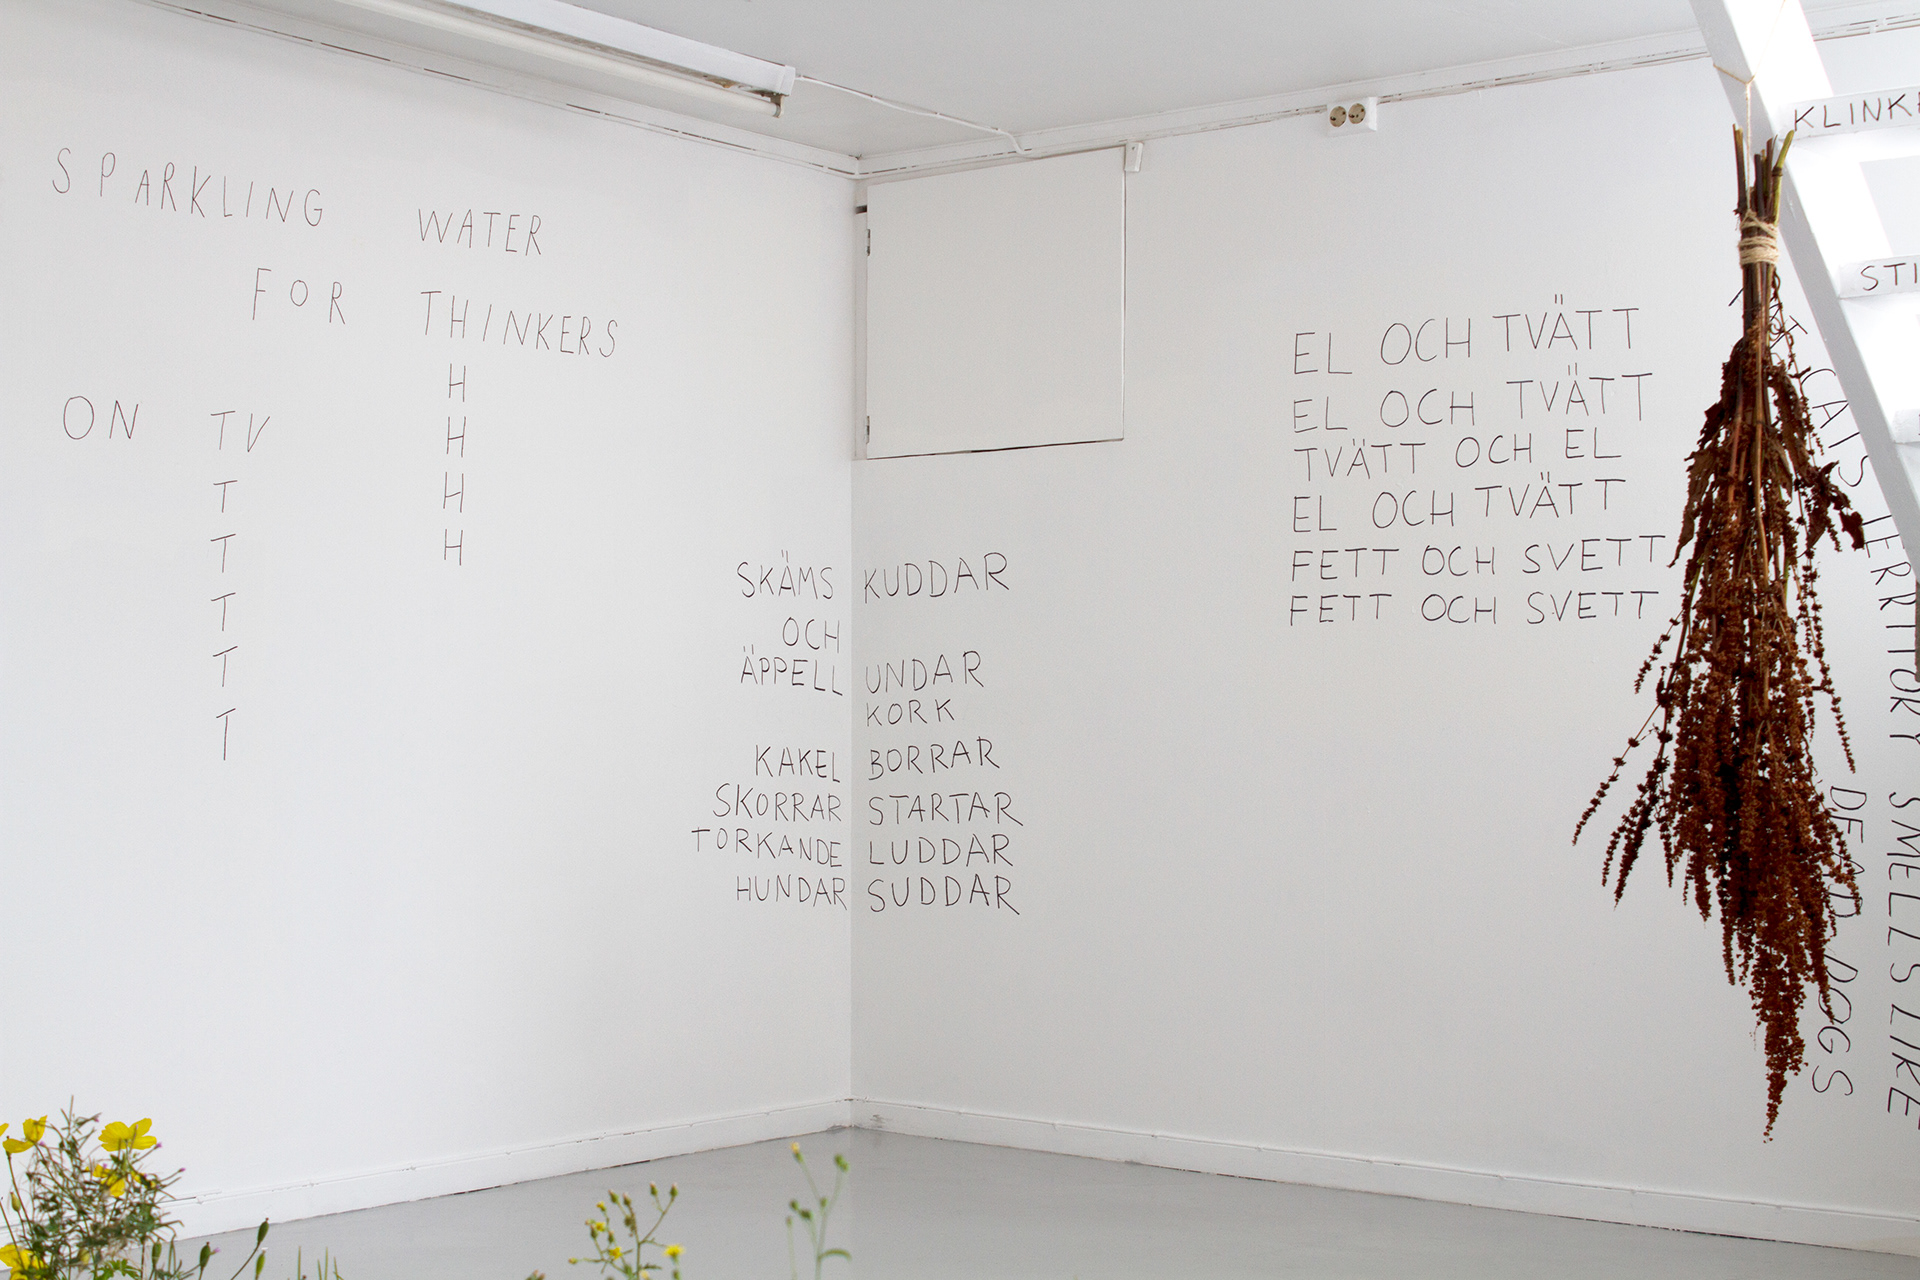 SPARKLING WATER
FOR THINKERS
H
H
H
H
ON TV
T
T
T
T
T
SKÄMS KUDDAR
OCH
ÄPPELL UNDAR
KORK
KAKEL BORRAR
SKORRAR STARTAR
TORKANDE LUDDAR
HUNDAR SUDDAR
EL OCH TVÄTT
EL OCH TVÄTT
TVÄTT OCH EL
EL OCH TVÄTT
FETT OCH SVETT
FETT OCH SVETT
CATS TERRITORY SMELLS LIKE
DEAD DOGS